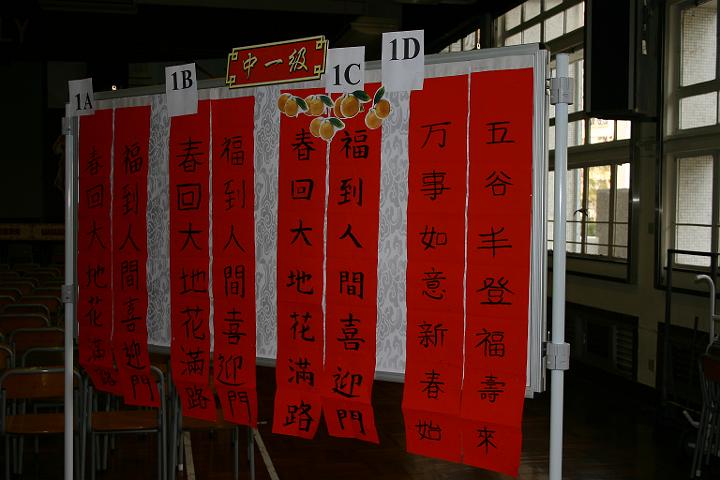 中一級
1A
福到人間喜迎門
春回大地花滿路
1B
福到人間喜迎門
春回大地花滿路
1C
福到人間喜迎門
春回大地花滿路
1D
五谷丰登福壽來
万事如意新春始